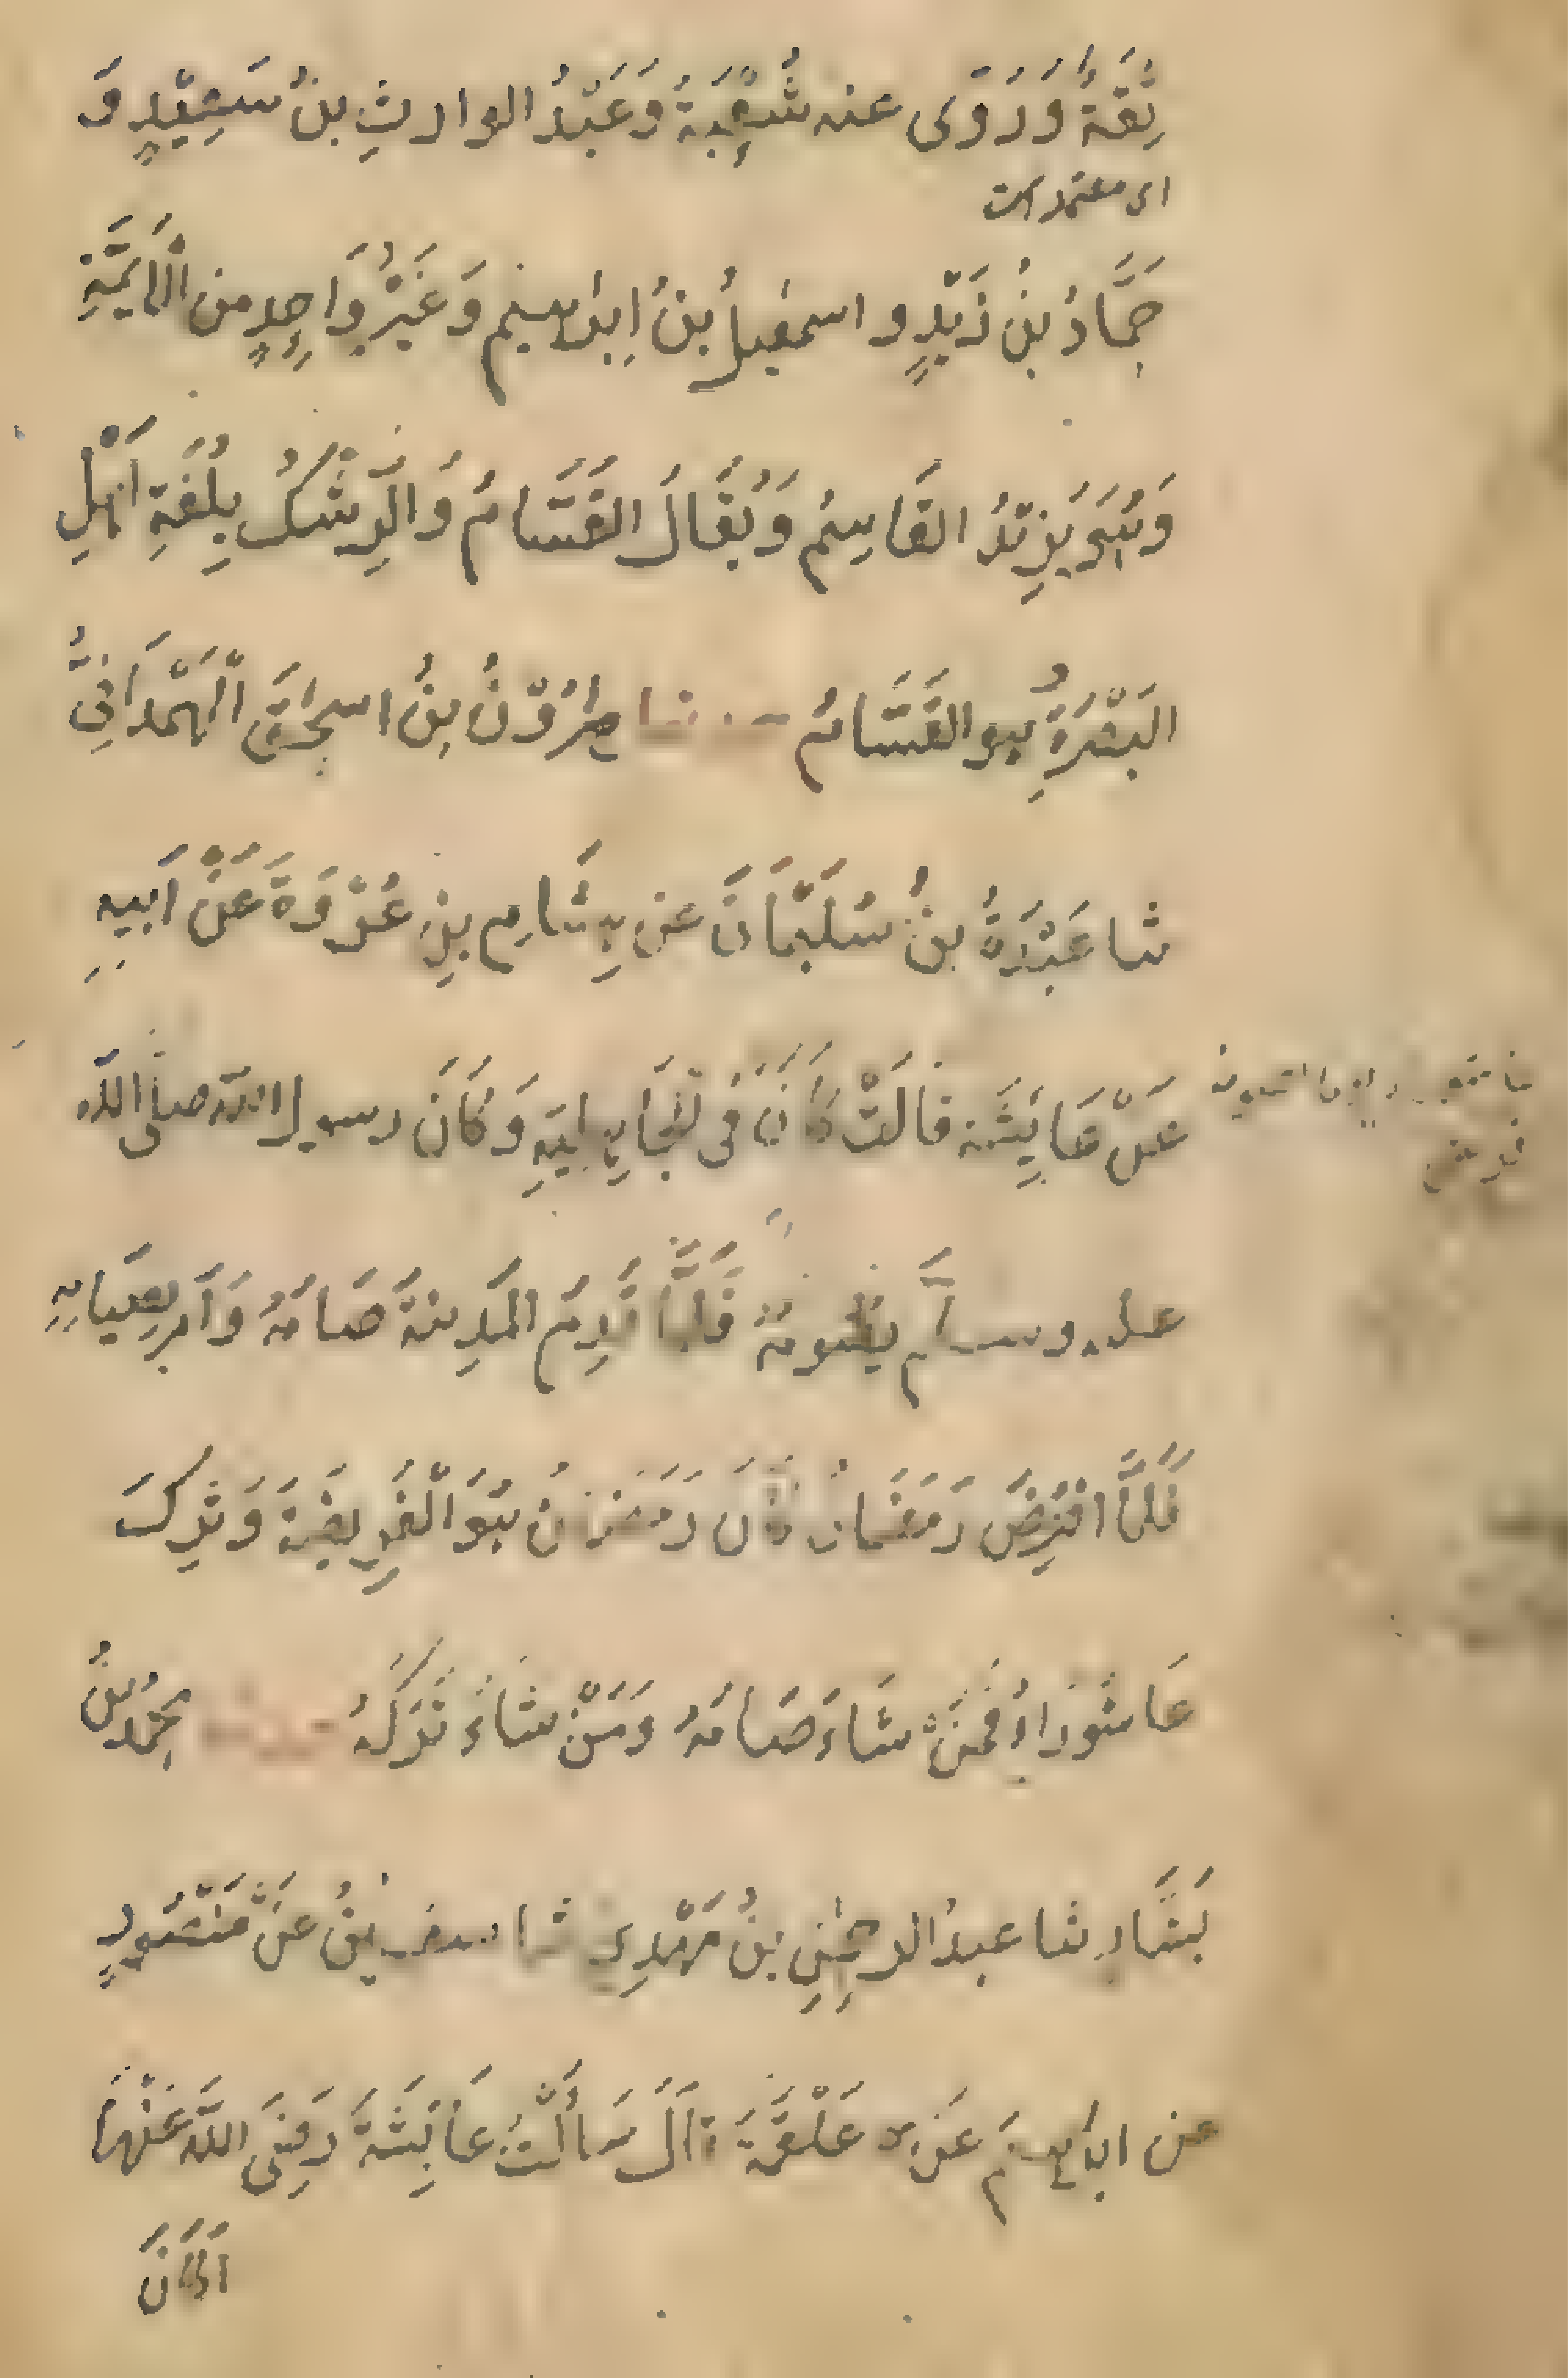 ثِقَةٌ وَرَوَى عنه شُعْبَةُ وَعَبْدُ الوارثِ بنُ سَعِيْدٍ وَ
اى معتمد است
حَمَّادُ بنُ زَيْدٍ و اسمٰعيلُ بنُ اِبرٰهيم وَغَيْرُ وَاحِدٍ من الْاَئِمَّةِ
وَهُوَ يَزِيْدُ القَاسِمُ وَيُقَالُ القَسَّامُ وَالرِّشْكُ بِلُغَةِ اَهْلِ
البَصْرَةِ هو القَسَّامُ حدثنا هٰرُوْنُ بنُ اسحٰقَ الْهَمْدَانِىُّ
ثنا عَبْدَةُ بنُ سُلَيْمَانَ عن هِشَامِ بنِ عُرْوَةَ عَنْ اَبيهِ
عَنْ عَايِشَة قَالَتْ كَانَ فى الجَاهِلِيَةِ وَكَانَ رسول الله صلى الله
عليه وسلَّم يَصُومُهُ فَلَمَّا قَدِمَ المَدِينَةَ صَامَهُ وَاَمَرَ بِصِيَامِهِ
فَلَمَّا افْتُرِضَ رَمَضَانُ كَانَ رَمَضَانُ هُوَ الْفَرِيضَةَ وَتُرِكَ
عَاشُورَاءُ فَمَنْ شَاءَ صَامَهُ وَمَنْ شَاءَ تَرَكَهُ حدثنا محمّدُ بنُ
بَشَّارٍ ثنا عبدُ الرحمٰنِ بنُ مَهْدِىٍ ثنا سفيٰنُ عَنْ مَنْصُورٍ
عن ابرٰهيمَ عَنْ عَلْقَمَةَ قَالَ سَاَلْتُ عَايِشَةَ رَضِىَ اللهُ عَنْهَا
اَكَانَ